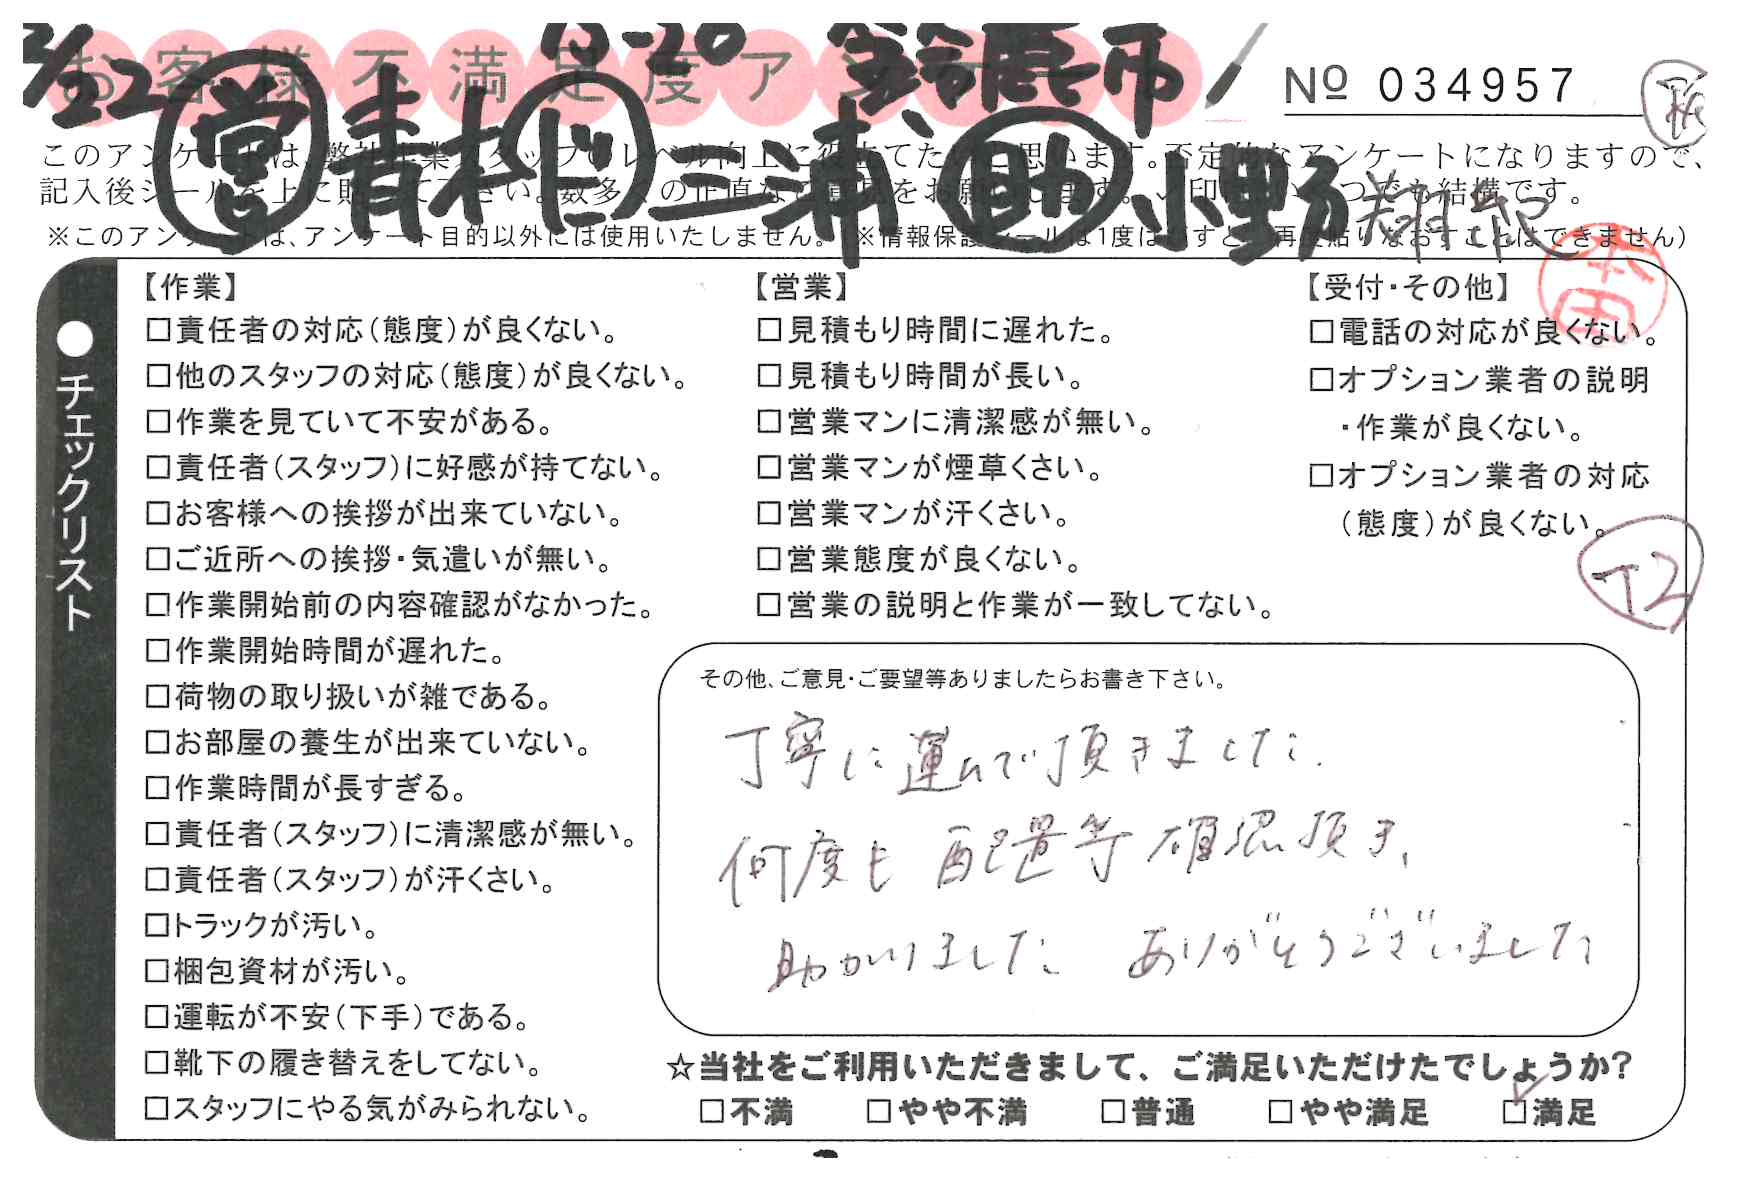 お客様不満足度アンケート
2/22 鈴鹿市
№ 034957
営 青木 ド 三浦 助 小野
このアンケートは、弊社作業スタッフのレベル向上に役立てたいと思います。否定的なアンケートになりますので、
記入後シールを上に貼って下さい。数多くの正直なご意見をお願いします。✓印はいくつでも結構です。
※このアンケートは、アンケート目的以外には使用いたしません。(※情報保護シールは1度はがすと、再度貼りなおすことはできません)
●チェックリスト
【作業】
□責任者の対応(態度)が良くない。
□他のスタッフの対応(態度)が良くない。
□作業を見ていて不安がある。
□責任者(スタッフ)に好感が持てない。
□お客様への挨拶が出来ていない。
□ご近所への挨拶・気遣いが無い。
□作業開始前の内容確認がなかった。
□作業開始時間が遅れた。
□荷物の取り扱いが雑である。
□お部屋の養生が出来ていない。
□作業時間が長すぎる。
□責任者(スタッフ)に清潔感が無い。
□責任者(スタッフ)が汗くさい。
□トラックが汚い。
□梱包資材が汚い。
□運転が不安(下手)である。
□靴下の履き替えをしてない。
□スタッフにやる気がみられない。
【営業】
□見積もり時間に遅れた。
□見積もり時間が長い。
□営業マンに清潔感が無い。
□営業マンが煙草くさい。
□営業マンが汗くさい。
□営業態度が良くない。
□営業の説明と作業が一致してない。
【受付・その他】
□電話の対応が良くない。
□オプション業者の説明
・作業が良くない。
□オプション業者の対応
(態度)が良くない。
T2
その他、ご意見・ご要望等ありましたらお書き下さい。
丁寧に運んで頂きました.
何度も配置等確認頂き、
助かりました ありがとうございました
☆当社をご利用いただきまして、ご満足いただけたでしょうか?
□不満 □やや不満 □普通 □やや満足 ☑満足